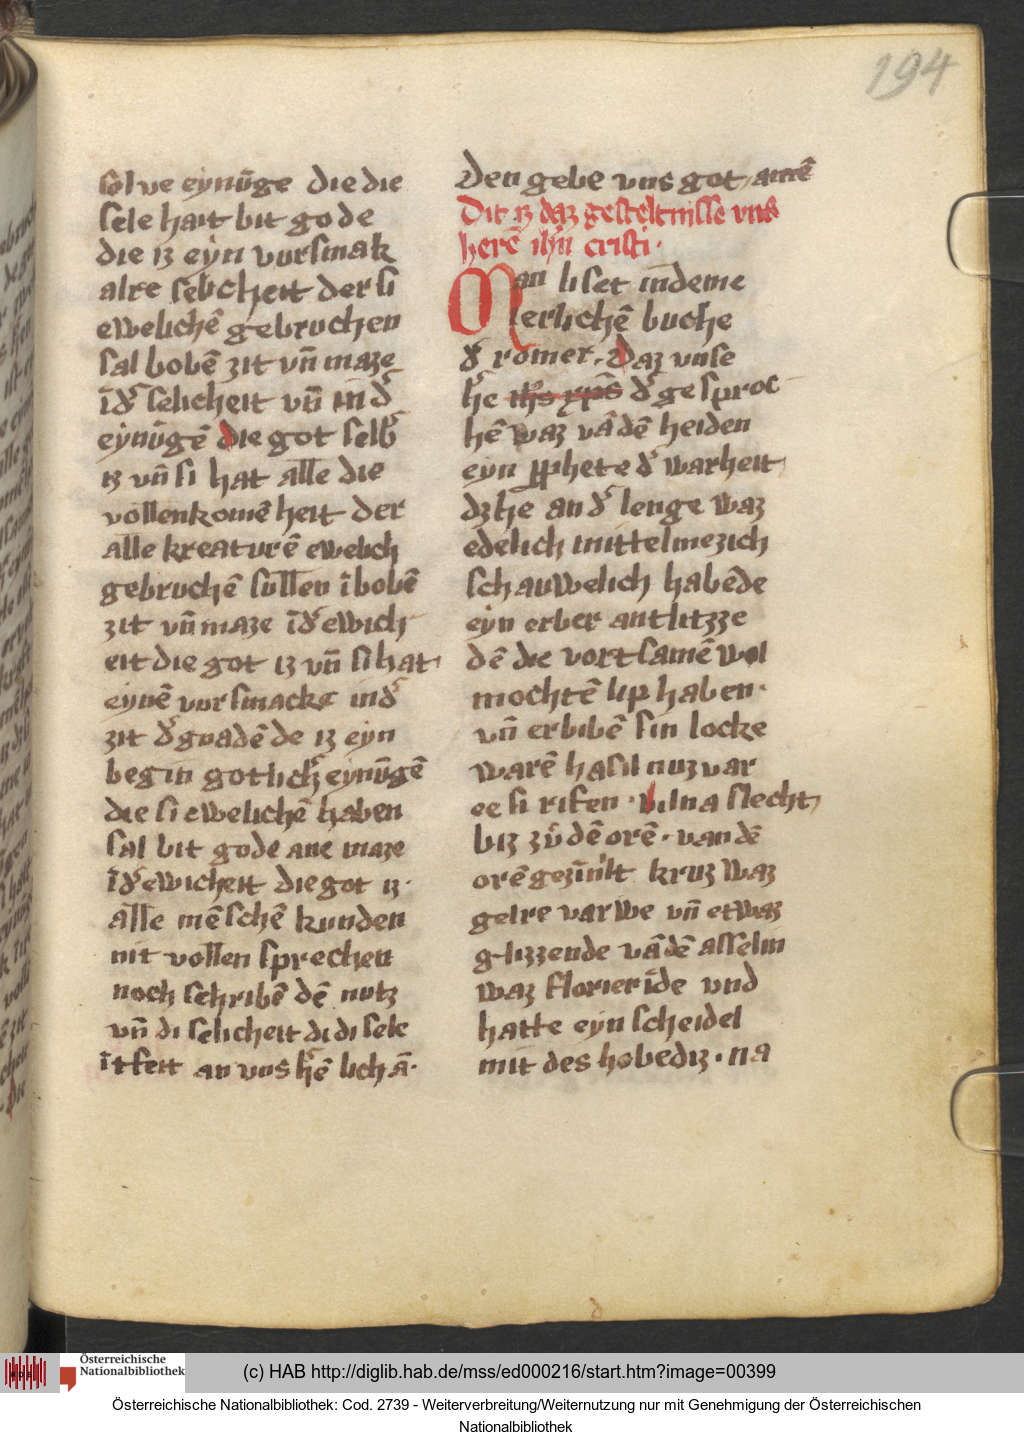 194
sol ve eynūge die die
sele hait bit gode
die iz eyn vorsmak
alre selicheit der si
ewelichē gebruchen
sal bobē zit vn̄ maze
īd' selicheit vn̄ in d'
eynūgē die got selb'
iz vn̄ si hat alle die
vollenkomēheit der
alle kreaturē ewelich
gebruchē sullen ī bobē
zit vn̄ maze īd' ewich
eit die got iz vn̄ si hat
eynē vorsmacke in d'
zit d' gnadē de iz eyn
begin gotlich' eynūgē
die si ewelichē haben
sal bit gode ane maze
īd' ewicheit die got iz·
alle mēschē kunden
nit vollen sprechen
noch schribē dē nutz
vn̄ di selicheit di di sele
ītfeit an vns h'ē lichā·
Den gebe vns got, amē
Dit iz daz gesteltnisse vns
herē ih'u cristi·
Man liset in deme
ierlichē buche
d' romer. Daz vnse
h'e ih's xp̄s d' gesproc
hē waz vā dē heiden
eyn pphete d' warheit
dz he an d' lenge waz
edelich mittelmezich
schauwelich habēde
eyn erber antlitzze
dē die vortsamē wol
mochtē lip haben·
vn̄ erbibē sin locke
warē hasilnuz var
ee si rifen· vilna slecht,
biz zů dē orē· van dē
orē gezinlt kruz waz
gelre varwe vn̄ etwaz
glizzende vā dē asselin
waz florierīde vnd
hatte eyn scheidel
mit des hobediz· na
Österreichische
Nationalbibliothek
(c) HAB http://diglib.hab.de/mss/ed000216/start.htm?image=00399
Österreichische Nationalbibliothek: Cod. 2739 - Weiterverbreitung/Weiternutzung nur mit Genehmigung der Österreichischen
Nationalbibliothek